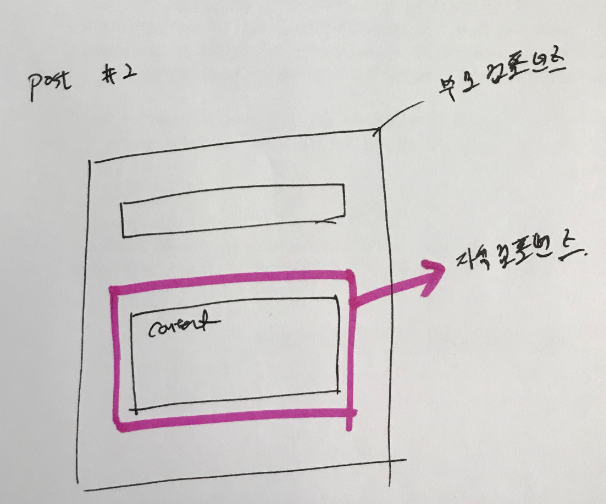 post #2
부모 컴포넌즈
자식 컴포넌즈.
content